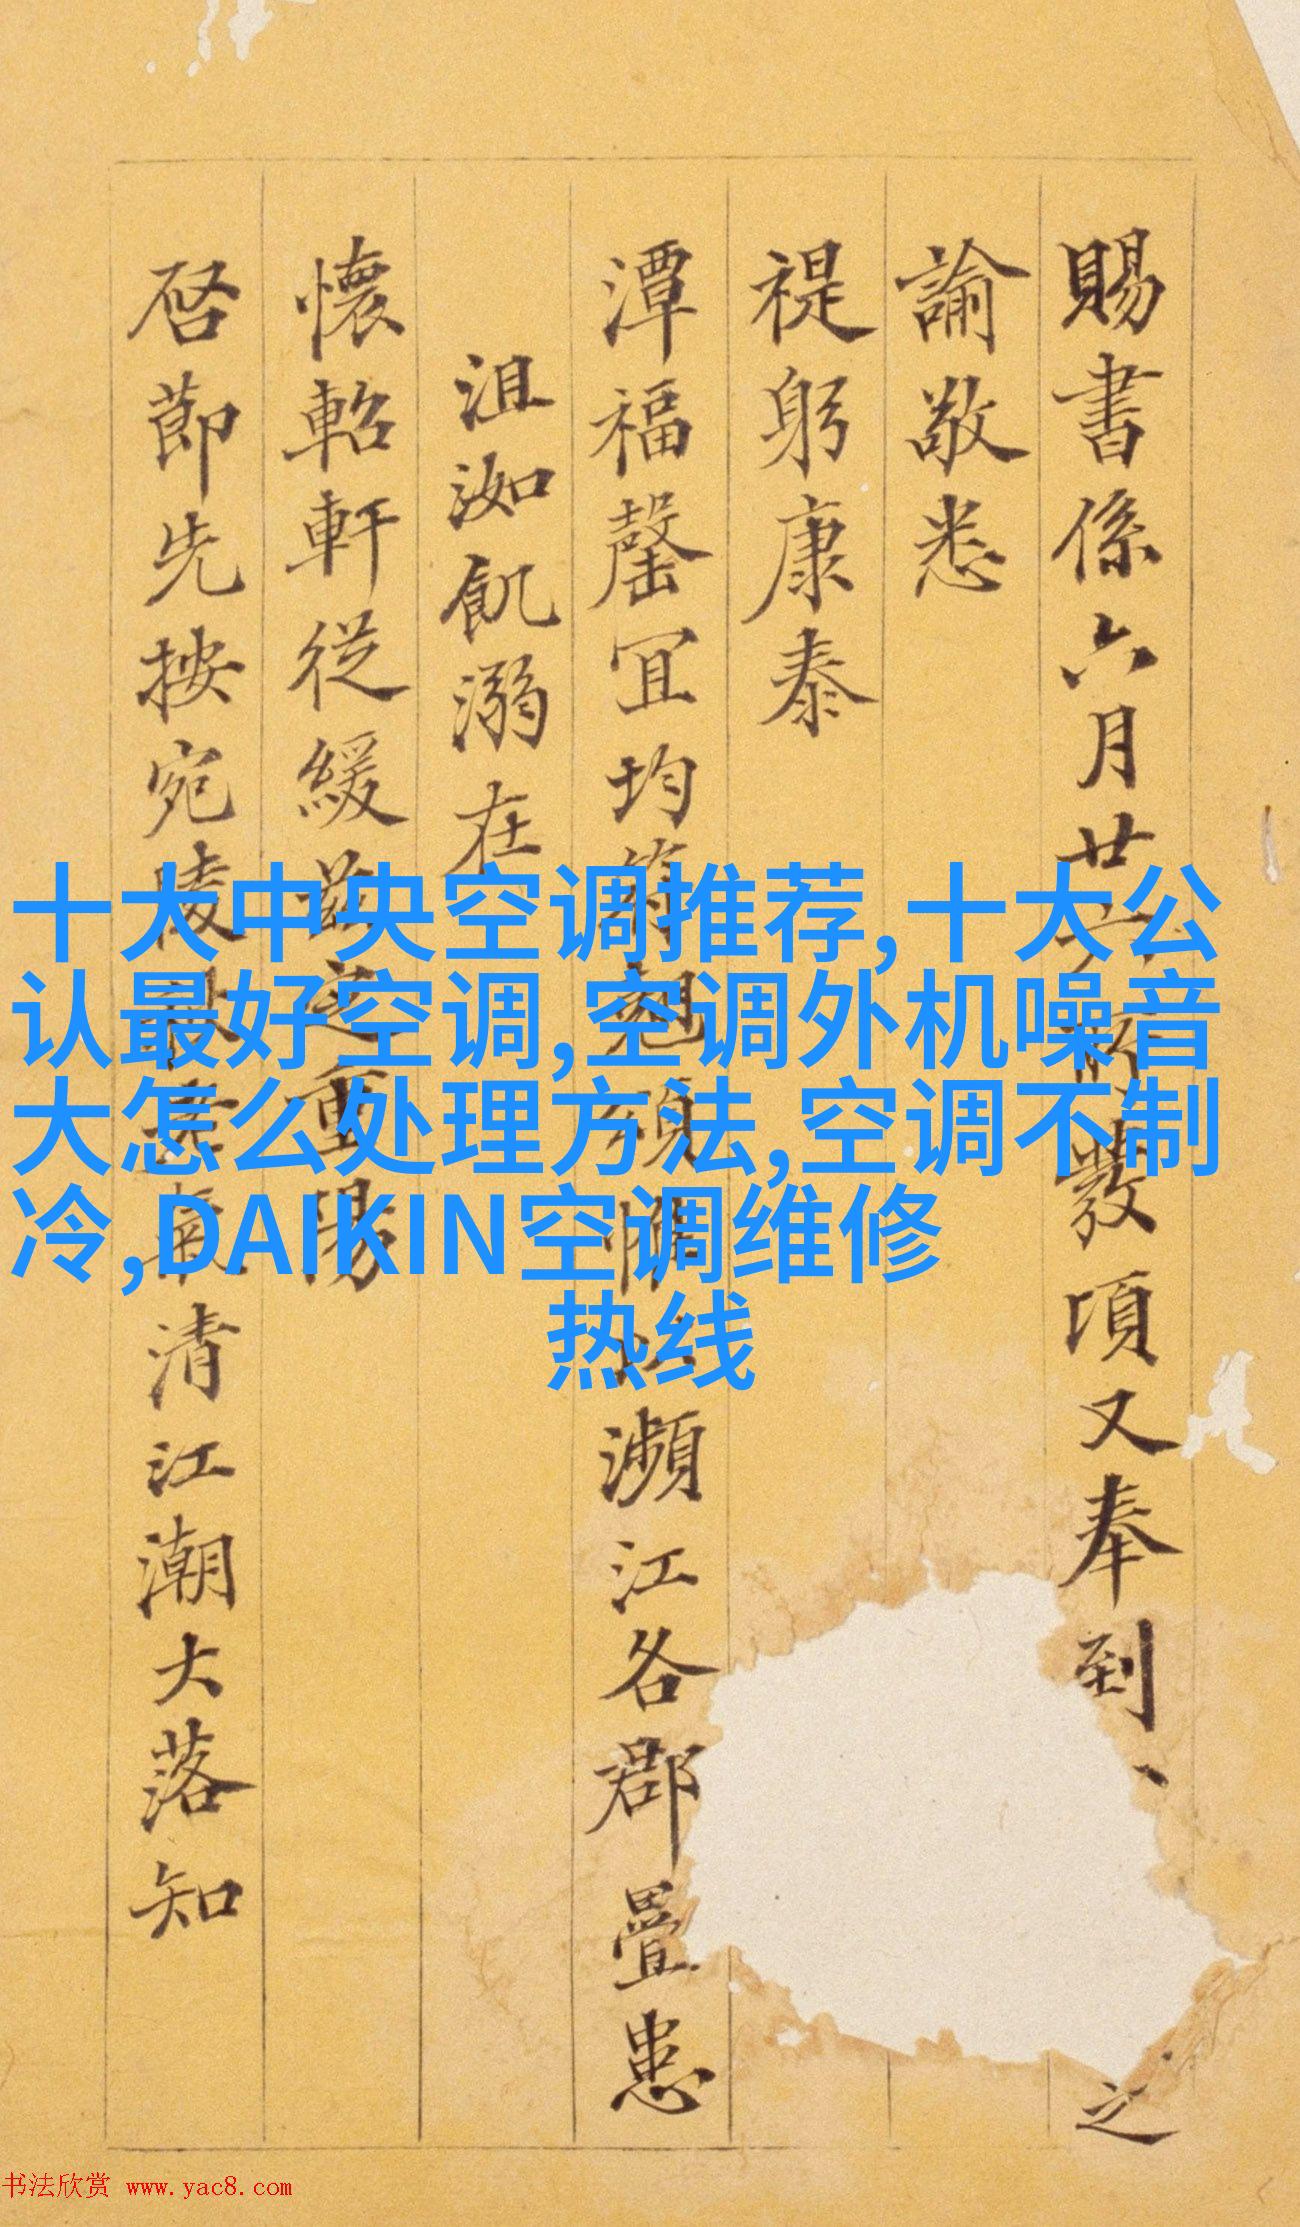 賜書係六月廿
發項又奉到
之
諭敬悉
禔躬康泰
潭福罄宜均
瀕江各郡疊患
沮洳飢溺在
懷軺軒從緩
重陽
启節先按宛陵
清江潮大落知
十大中央空调推荐,十大公
认最好空调,空调外机噪音
大怎么处理方法,空调不制
冷,DAIKIN空调维修
热线
书法欣赏 www.yac8.com